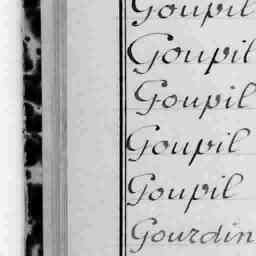 Goupil
Goupil
Goupil
Goupil
Goupil
Gourdin